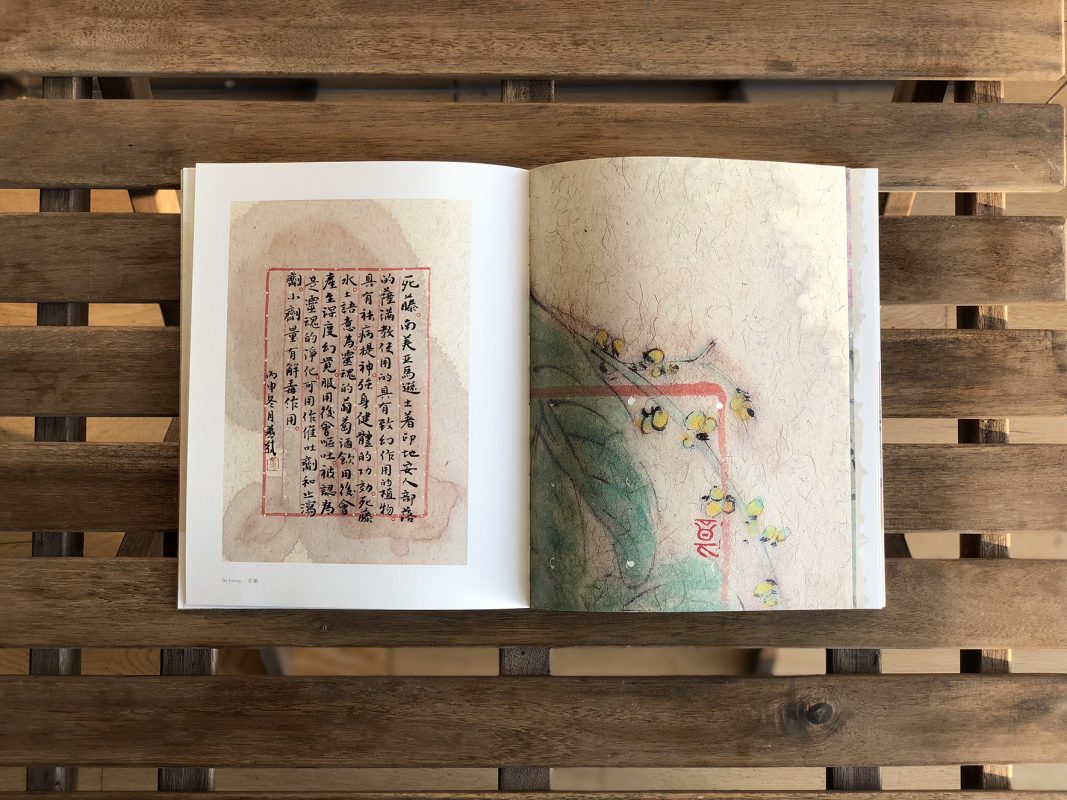 死藤。南美亞馬遜土著印地安人部落
的薩滿教使用的具有致幻作用的植物
具有祛病提神強身健體的功効。死藤
水土語意為靈魂的葡萄酒飲用後會
產生深度幻覺。服用後會嘔吐。被認為
是靈魂的淨化可用作催吐劑和止瀉
劑。小劑量有解毒作用。
丙申冬月